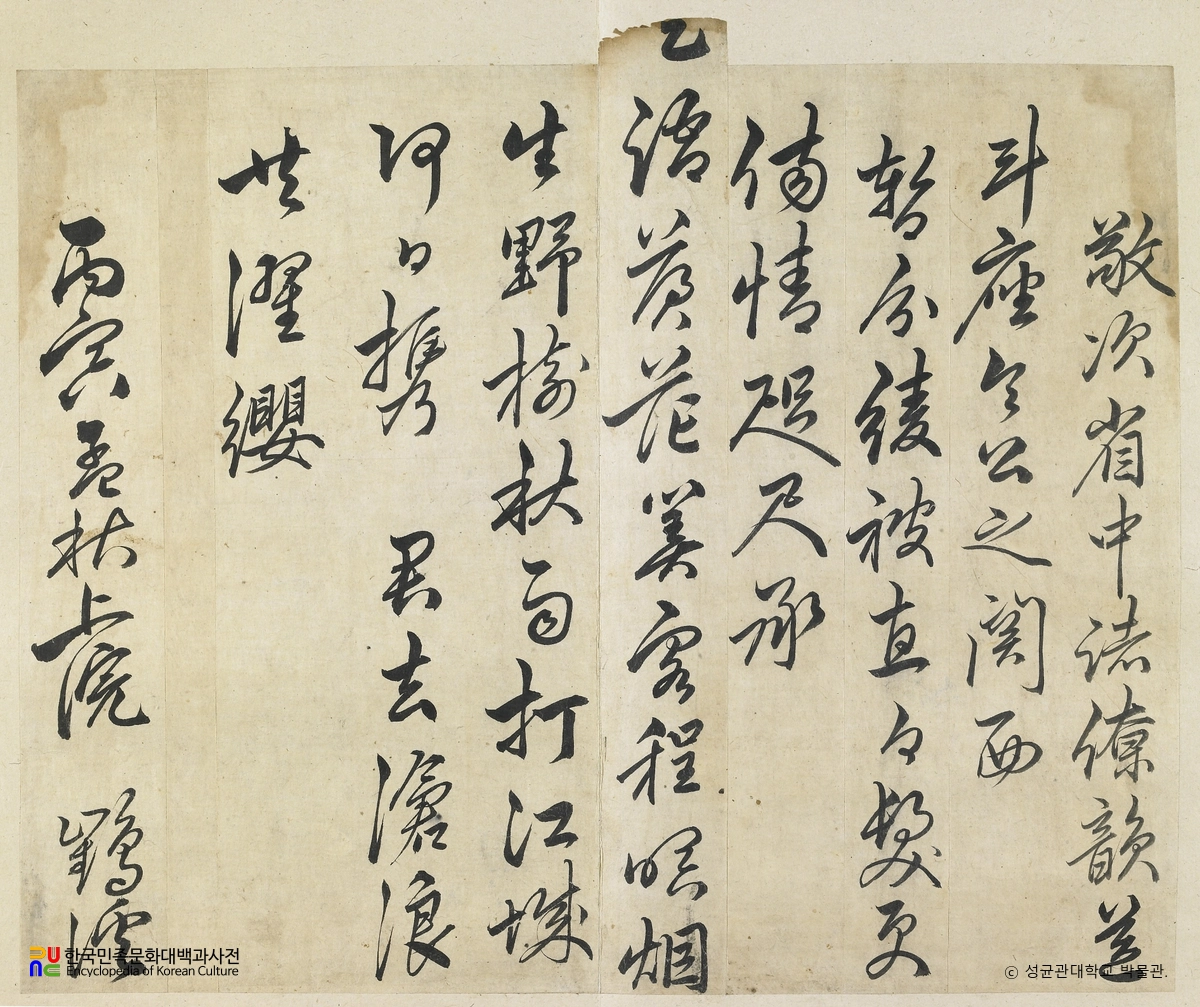 敬次省中諸僚韻送
斗座令公之關西
暫分綾被直白髮更
傷情咫尺承
天語黃花美客程暝烟
生野樹秋雨打江城
何日携 君去滄浪
共濯纓
丙寅孟秋上浣 鶴
한국민족문화대백과사전
Encyclopedia of Korean Culture
© 성균관대학교 박물관.